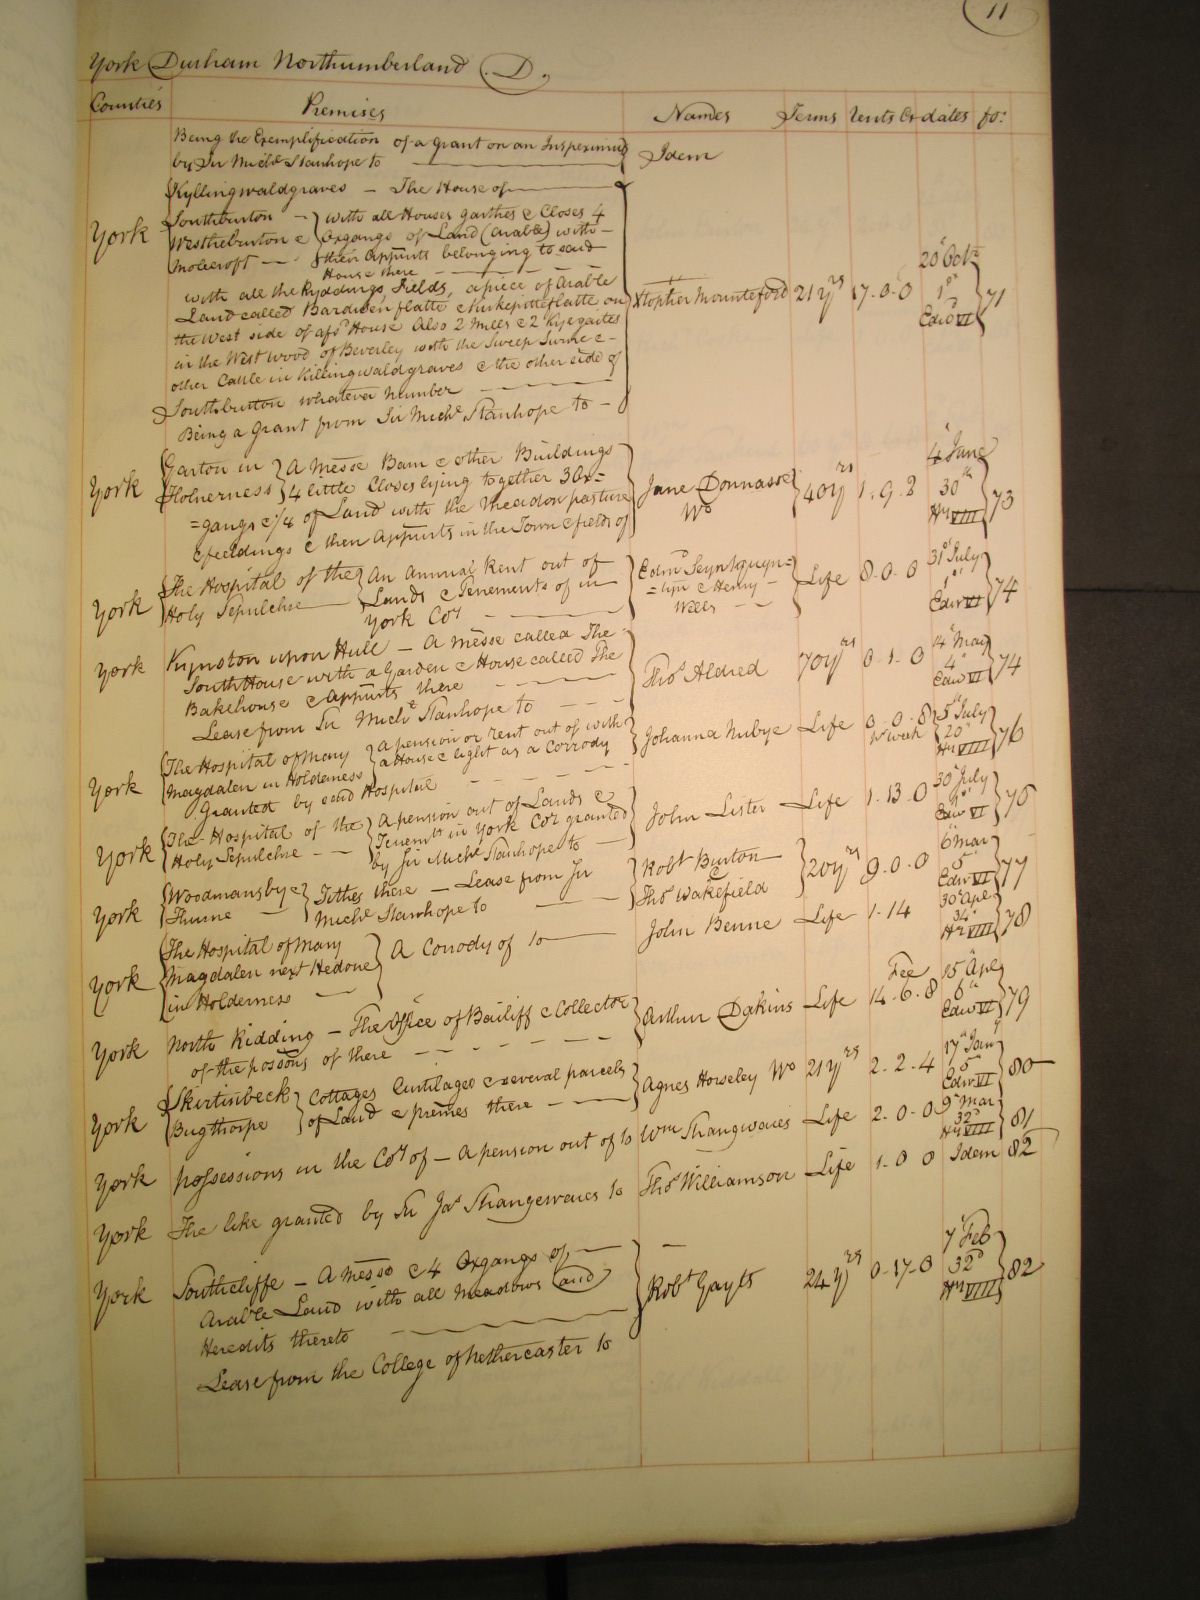 11
York Durham Northumberland D.
Counties Premises Names Terms Rents &c dates fo:
Being the Exemplification of a grant on an Inspeximus
by Sir Michl Stanhope to Idem
Kyllingwaldgraves — The House of
York
Southburton — with all Houses garthes & Closes 4
Westheburton & Oxgangs of Land (arable) with —
Molecroft — their Appurts belonging to said
House there
with all the Ryddings, Fields, a piece of Arable
Land called Bardwen flatte & Kirkepitteflatte on
the West side of afsd House Also 2 Mills & 2 Kyegaites
in the West wood of Beverley with the Sweep Swine &
other Cattle in Killingwaldgraves & the other side of
Southburton whatever number
Being a Grant from Sir Michl Stanhope to —
Xtopher Mounteford 21 yrs 17.0.0 20 Octr 1st Edwd VI 71
York Garton in Holderness A Messe Barn & other Buildings
4 little Closes lying together 3 Ox=
=gangs & 1/4 of Land with the Meadow pasture
& feeldings & then Appurts in the Town & fields of
Jane Donnasoe Wo 40 yrs 1.9.2 4 June 30th Hy VIII 73
York The Hospital of the Holy Sepulchre An Annual Rent out of
Lands & Tenements of in
York Coy
Edmd — & Henry — Wells Life 8.0.0 31st July 1st Edw VI 74
York Kynston upon Hull — A Messe called The
South House with a Garden & House called The
Bakehouse & Appurts there
Lease from Sir Michl Stanhope to
Thos Aldred 70 yrs 0.1.0 14 May 4 Edw VI 74
York The Hospital of Mary Magdalen in Holderness A pension or rent out of with
a House & light as a Corrody
Granted by said Hospital
Johanna Nubye Life 0.0.8 Pr Week 5th July 20th Hy VIII 76
York The Hospital of the Holy Sepulchre A pension out of Lands &
Tenemts in York Coy granted
by Sir Michl Stanhope to
John Lister Life 1.13.0 30 July 1st Edw VI 76
York Woodmansbye & Thurne Tithes there — Lease from Sir
Michl Stanhope to
Robt Burton & Thos Wakefield 20 yrs 9.0.0 6 Mar 5 Edw VI 77
York The Hospital of Mary
Magdalen next Hedone
in Holderness
A Corrody of to John Benne Life 1.14 30 Apl 34 Hy VIII 78
York North Ridding — The Office of Bailiff & Collector
of the possons of there
Arthur Dakins Life Fee 14.6.8 15 Apl 6th Edw VI 79
York Skirtinbeck Bugthorpe Cottages Curtilages & several parcels
of Land & premes there
Agnes Horseley Wo 21 yrs 2.2.4 17th Jany 5 Edw VI 80
York possessions in the Coy of — A pension out of to Wm Strangwaies Life 2.0.0 9 Mar 32d Hy VIII 81
York The like granted by Sir Jas Strangewaies to Thos Williamson Life 1.0 0 Idem 82
York Southcliffe — A Messe & 4 Oxgangs of
Arable Land with all Meadows and
Heredits thereto
Lease from the College of Nethercaster to
Robt Gayts 24 yrs 0.17.0 7 Feb 32d Hy VIII 82